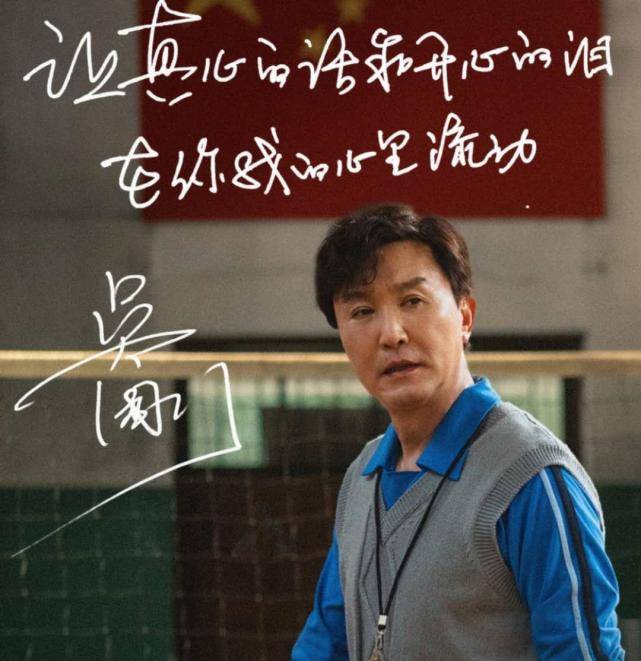 让真心的话和开心的泪
在你我的心里流动
吴刚